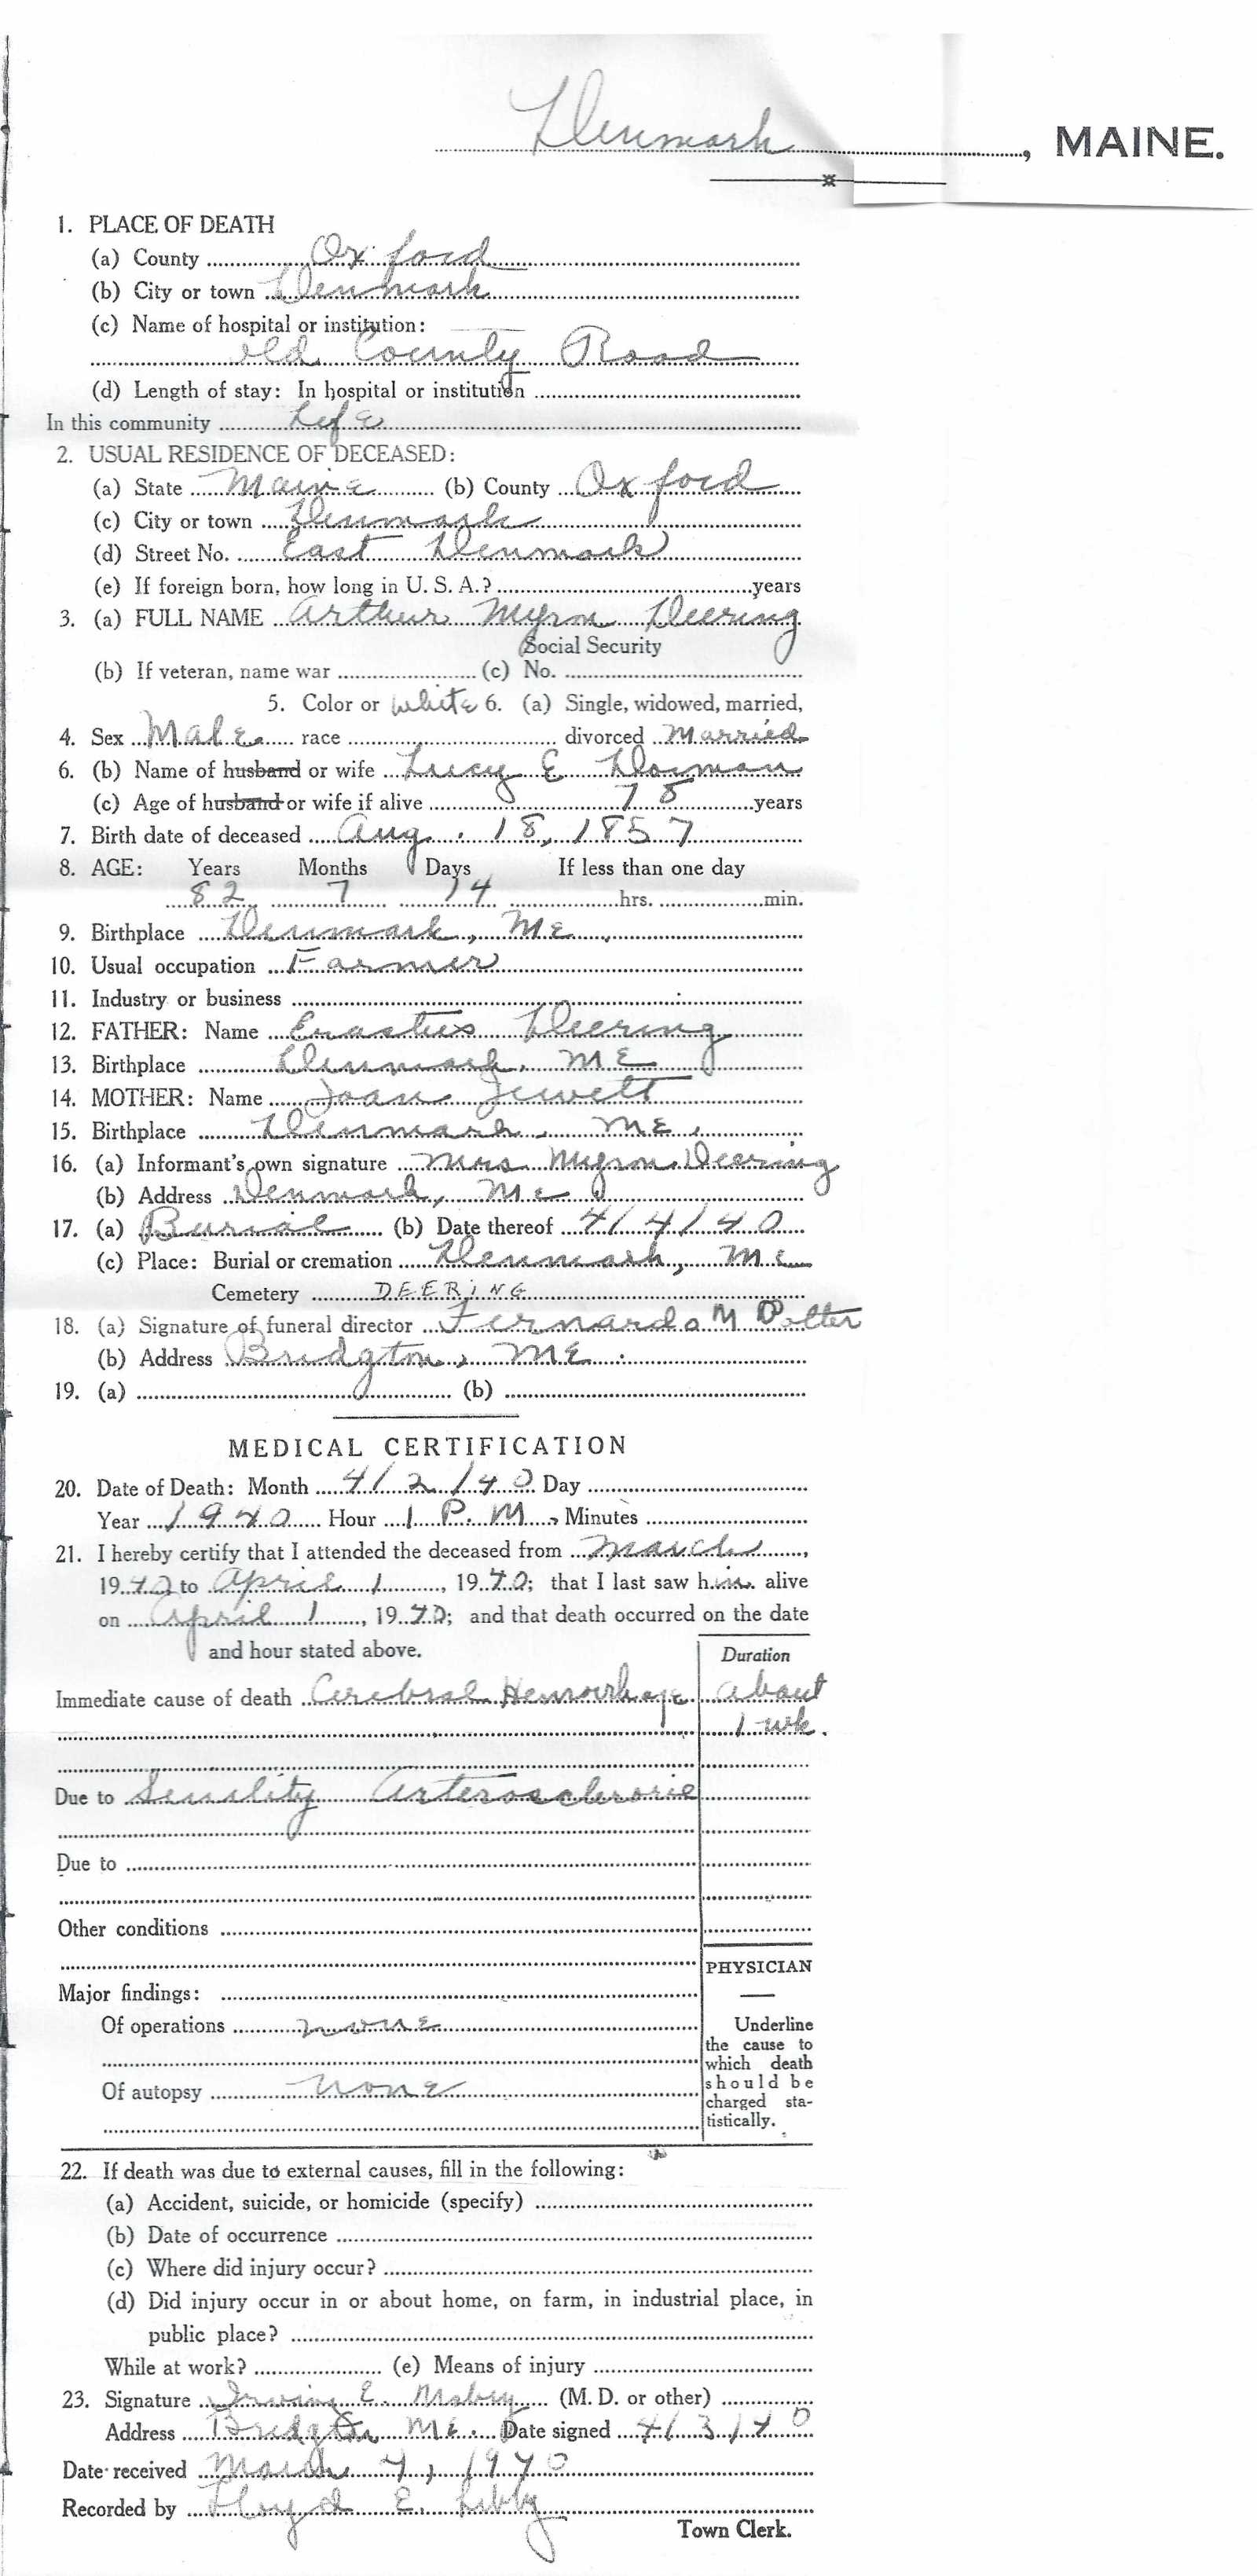 Denmark, MAINE.
1. PLACE OF DEATH
(a) County Oxford
(b) City or town Denmark
(c) Name of hospital or institution:
old County Road
(d) Length of stay: In hospital or institution
In this community Life
2. USUAL RESIDENCE OF DECEASED:
(a) State Maine (b) County Oxford
(c) City or town Denmark
(d) Street No. East Denmark
(e) If foreign born, how long in U. S. A.? years
3. (a) FULL NAME Arthur Myron Deering
Social Security
(b) If veteran, name war (c) No.
5. Color or white 6. (a) Single, widowed, married,
4. Sex Male race divorced Married
6. (b) Name of husband or wife Lucy E Dorman
(c) Age of husband or wife if alive 78 years
7. Birth date of deceased Aug. 18, 1857
8. AGE: Years Months Days If less than one day
82 7 14 hrs. min.
9. Birthplace Denmark, ME.
10. Usual occupation Farmer
11. Industry or business
12. FATHER: Name Erastus Deering
13. Birthplace Denmark, ME
14. MOTHER: Name Joan Jewett
15. Birthplace Denmark, ME.
16. (a) Informant's own signature Mrs. Myron Deering
(b) Address Denmark, Me
17. (a) Burial (b) Date thereof 4/4/40
(c) Place: Burial or cremation Denmark, Me
Cemetery DEERING
18. (a) Signature of funeral director Fernardo M Potter
(b) Address Bridgton, ME.
19. (a) (b)
MEDICAL CERTIFICATION
20. Date of Death: Month 4/2/40 Day
Year 1940 Hour 1 P.M., Minutes
21. I hereby certify that I attended the deceased from March,
1940 to April 1, 1940; that I last saw him alive
on April 1, 1940; and that death occurred on the date
and hour stated above.
Duration
Immediate cause of death Cerebral Hemorrhage about
1 wk.
Due to Senility Arterosclerosis
Due to
Other conditions
PHYSICIAN
Major findings:
Of operations none
Of autopsy none
Underline
the cause to
which death
should be
charged sta-
tistically.
22. If death was due to external causes, fill in the following:
(a) Accident, suicide, or homicide (specify)
(b) Date of occurrence
(c) Where did injury occur?
(d) Did injury occur in or about home, on farm, in industrial place, in
public place?
While at work? (e) Means of injury
23. Signature Irving E. Mabry (M. D. or other)
Address Bridgton ME. Date signed 4/3/40
Date received March 4, 1940
Recorded by Lloyd E. Libby
Town Clerk.